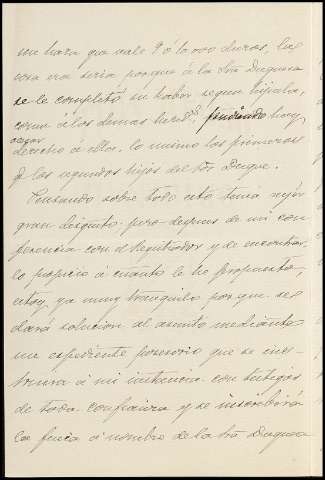 una haza que vale 9 ó 10.000 duros, la
cosa era seria porque á la Sra Duquesa
se le completó su haber segun hijuela,
como á los demas hered.s, pudiendo hoy
osar
derecho á ella lo mismo los primeros
q. los segundos hijos del Sor Duque.
Pensando sobre todo esto tenia
gran disgusto pero despues de mi con
ferencia con el Registrador y de encontrar
lo propicio á cuanto le he propuesto,
estoy ya muy tranquilo porque se
dará solucion al asunto mediante
un espediente posesorio que se ins-
truira á mi instancia con testigos
de toda confianza y se inscribirá
la finca á nombre de la Sra Duquesa